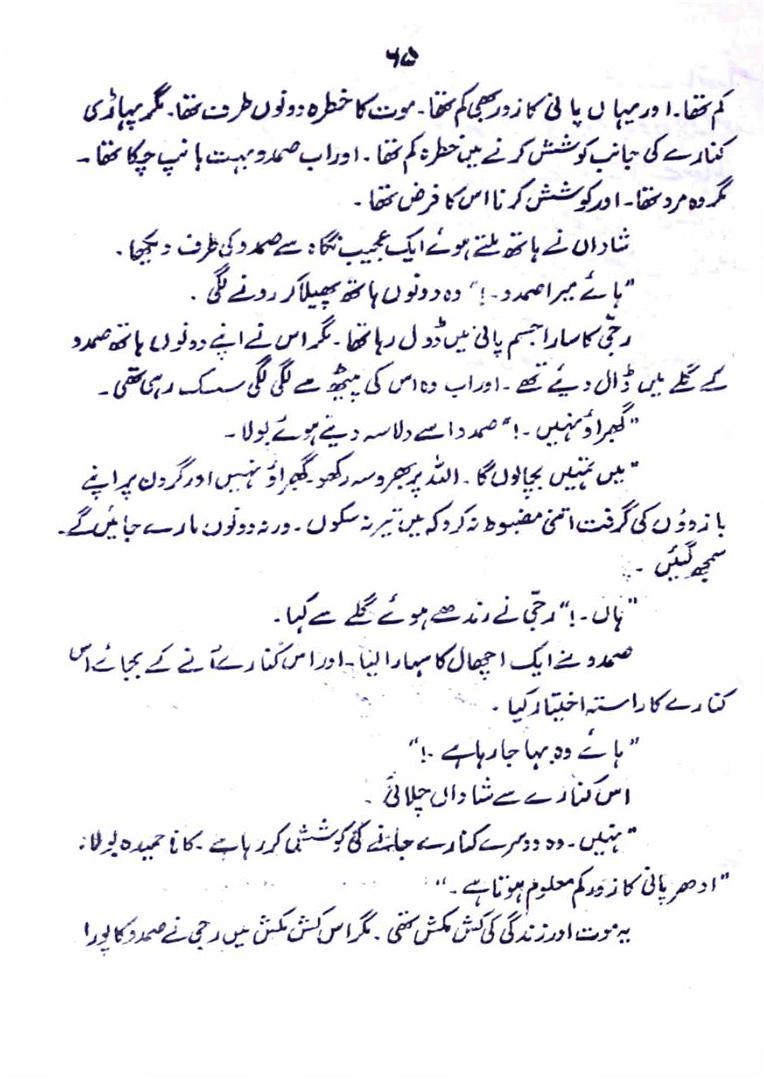 ۶۵
کم تھا۔ اور یہاں پانی کا زور بھی کم تھا۔ موت کا خطرہ دونوں طرف تھا۔ مگر پہاڑی
کنارے کی جانب کوشش کرنے میں خطرہ کم تھا۔ اور اب صمدو بہت ہانپ چکا تھا۔
مگر وہ مرد تھا۔ اور کوشش کرنا اس کا فرض تھا۔
شاداں نے ہاتھ ملتے ہوئے ایک عجیب نگاہ سے صمدو کی طرف دیکھا۔
"ہائے میرا صمدو۔!" وہ دونوں ہاتھ پھیلا کر رونے لگی۔
رجّی کا سارا جسم پانی میں ڈول رہا تھا۔ مگر اس نے اپنے دونوں ہاتھ صمدو
کے گلے میں ڈال دیئے تھے۔ اور اب وہ اس کی پیٹھ سے لگی لگی سسک رہی تھی۔
"گھبراؤ نہیں۔!" صمدو اسے دلاسہ دیتے ہوئے بولا۔
"میں تمہیں بچا لوں گا۔ اللہ پر بھروسہ رکھو۔ گھبراؤ نہیں اور گردن پر اپنے
بازوؤں کی گرفت اتنی مضبوط نہ کرو کہ میں تیر نہ سکوں۔ ورنہ دونوں مارے جائیں گے۔
سمجھ گئیں۔
"ہاں۔!" رجّی نے رندھے ہوئے گلے سے کہا۔
صمدو نے ایک اچھال کا سہارا لیا۔ اور اس کنارے آنے کے بجائے اُس
کنارے کا راستہ اختیار کیا۔
"ہائے وہ بہا جا رہا ہے۔!"
اس کنارے سے شاداں چلائی۔
"نہیں۔ وہ دوسرے کنارے جانے کی کوشش کر رہا ہے۔ کانا حمیدہ بولا،
"ادھر پانی کا زور کم معلوم ہوتا ہے۔"
یہ موت اور زندگی کی کش مکش تھی۔ مگر اس کش مکش میں رجی نے صمدو کا پورا